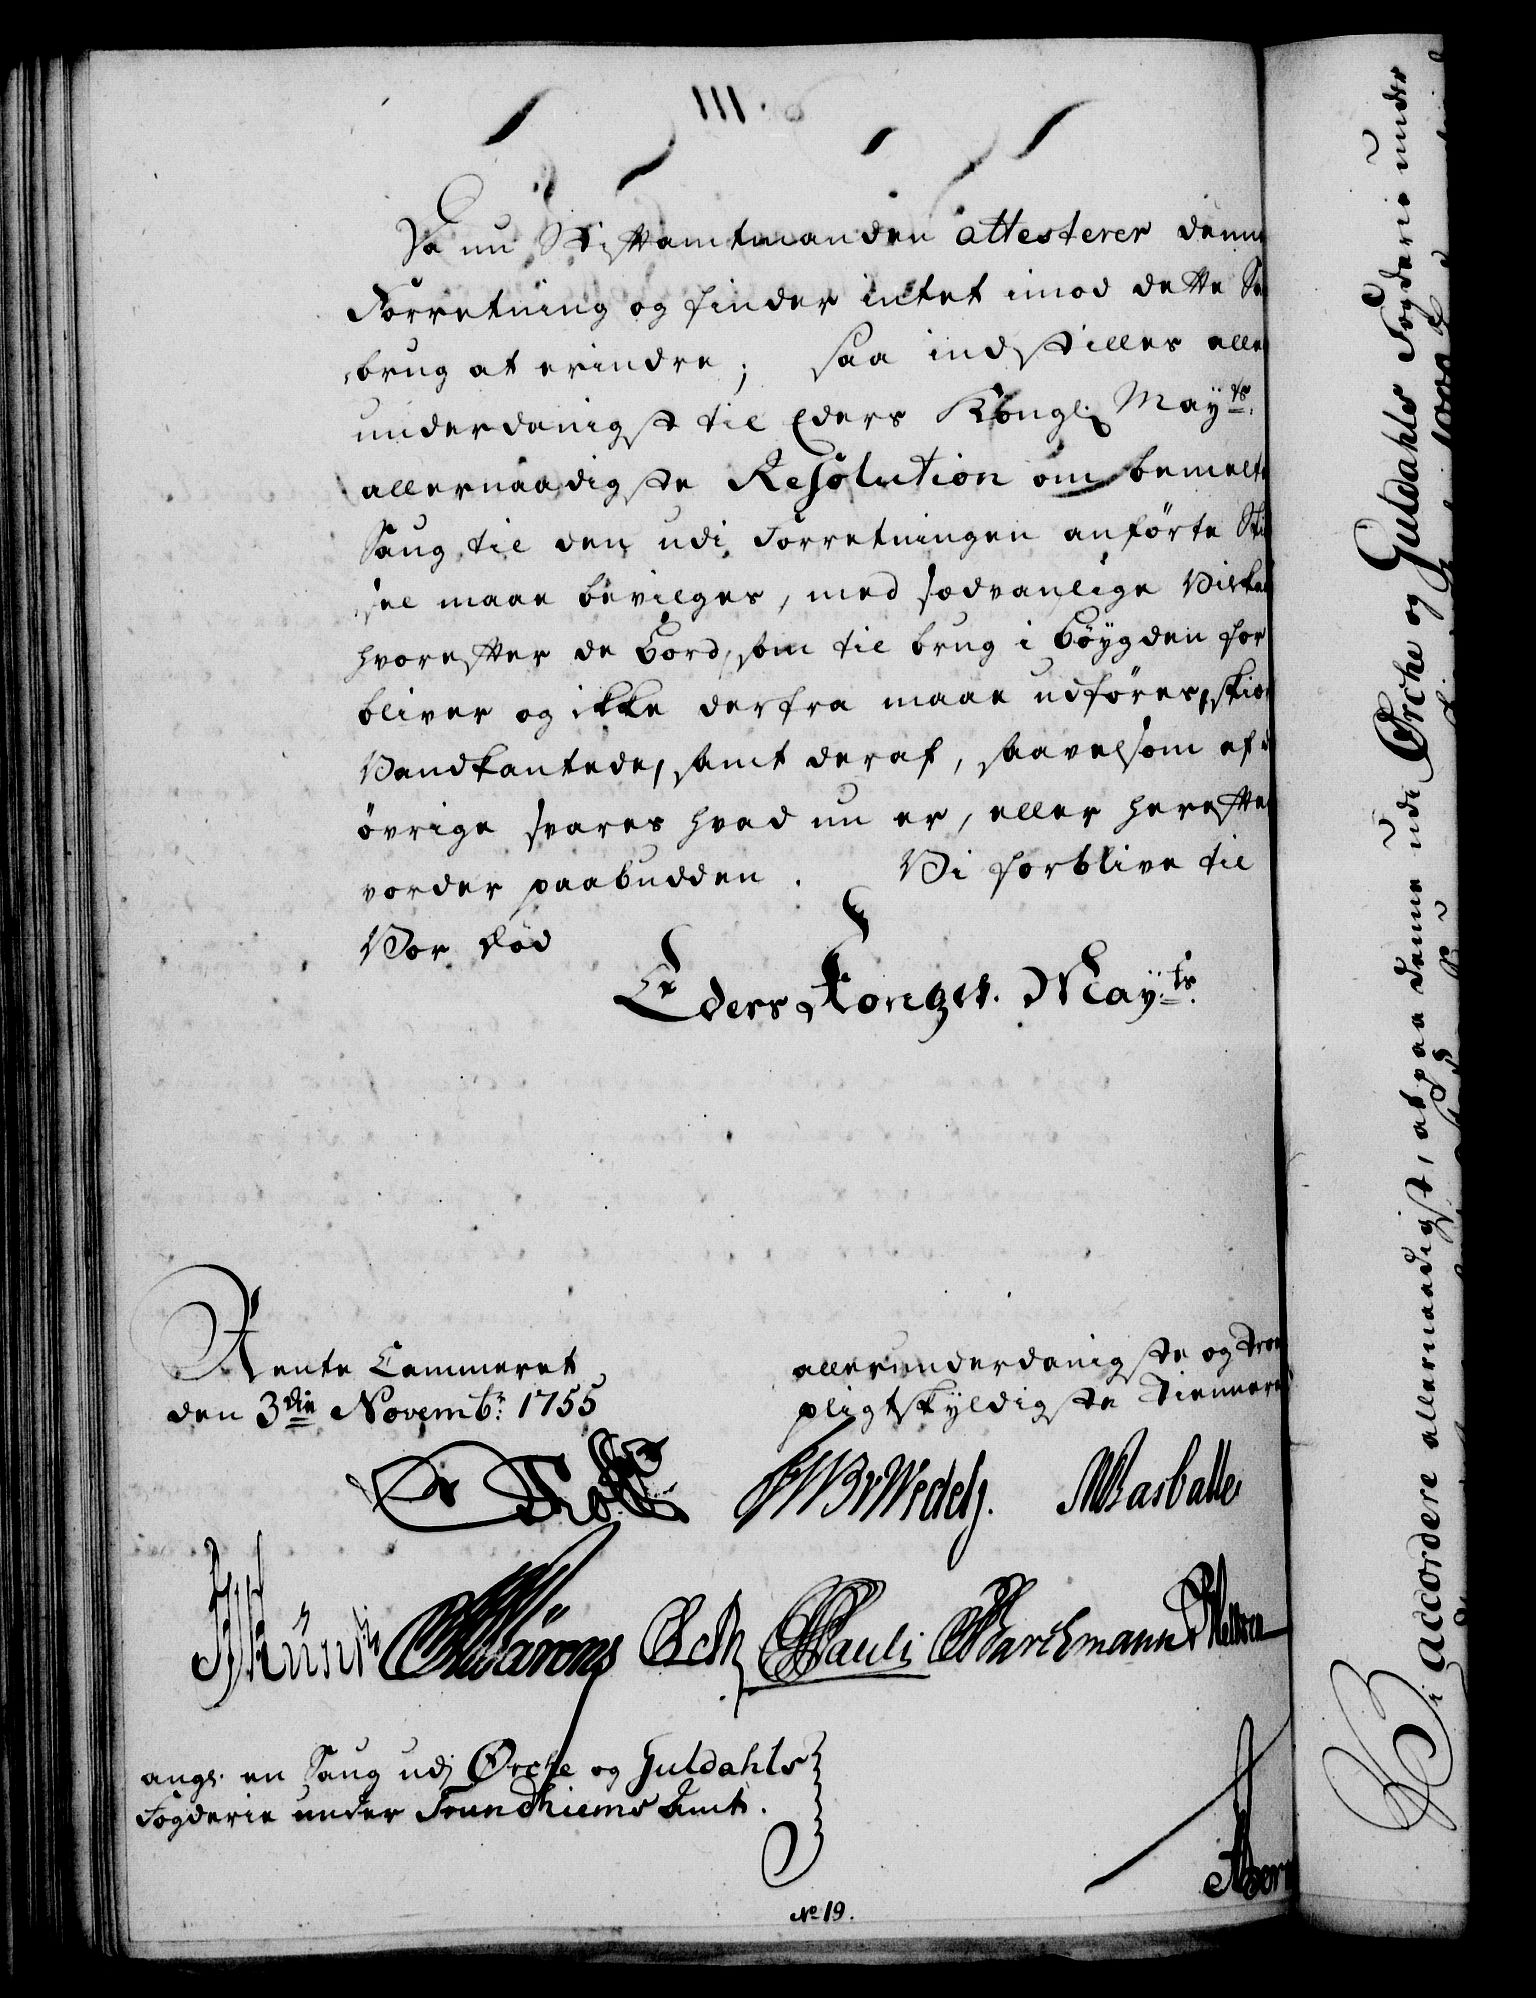 111.
Da nu Stiftamtmanden attesterer denne
Forretning og finder intet imod dette
brug at erindre; saa indstilles aller
underdanigst til Eders Kongl. Mayts.
allernaadigste Resolution om bemelte
Saug til den udi Forretningen anförte
sel maae bevilges, med sædvanlige Vilkaar
hvorefter de Bord, som til brug i Böygden for
bliver og ikke derfra maae udföres,
Vandkantede, samt deraf, saavelsom af
övrige svares hvad nu er, eller herefter
vorder paabudden. Vi forblive til
Vor Död
Eders Kongl. Mayts.
Rente Cammeret
den 3die Novembr: 1755
allerunderdanigste og troe
pligtskyldigste Tiennere
Holst WBvWedelj. Rasballe
Pauli Barchmann
angl. en Saug udj Orche og Guldahls
Fogderie under Trundhiems Amt.
No 19.
Vi accordere allernaadigst, at paa denne udi Orche og Guldahls Fogderie under